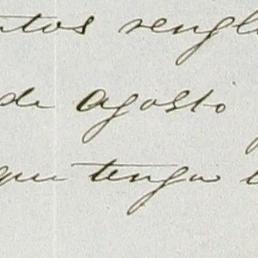 ntos rengl
de agosto
que tengo